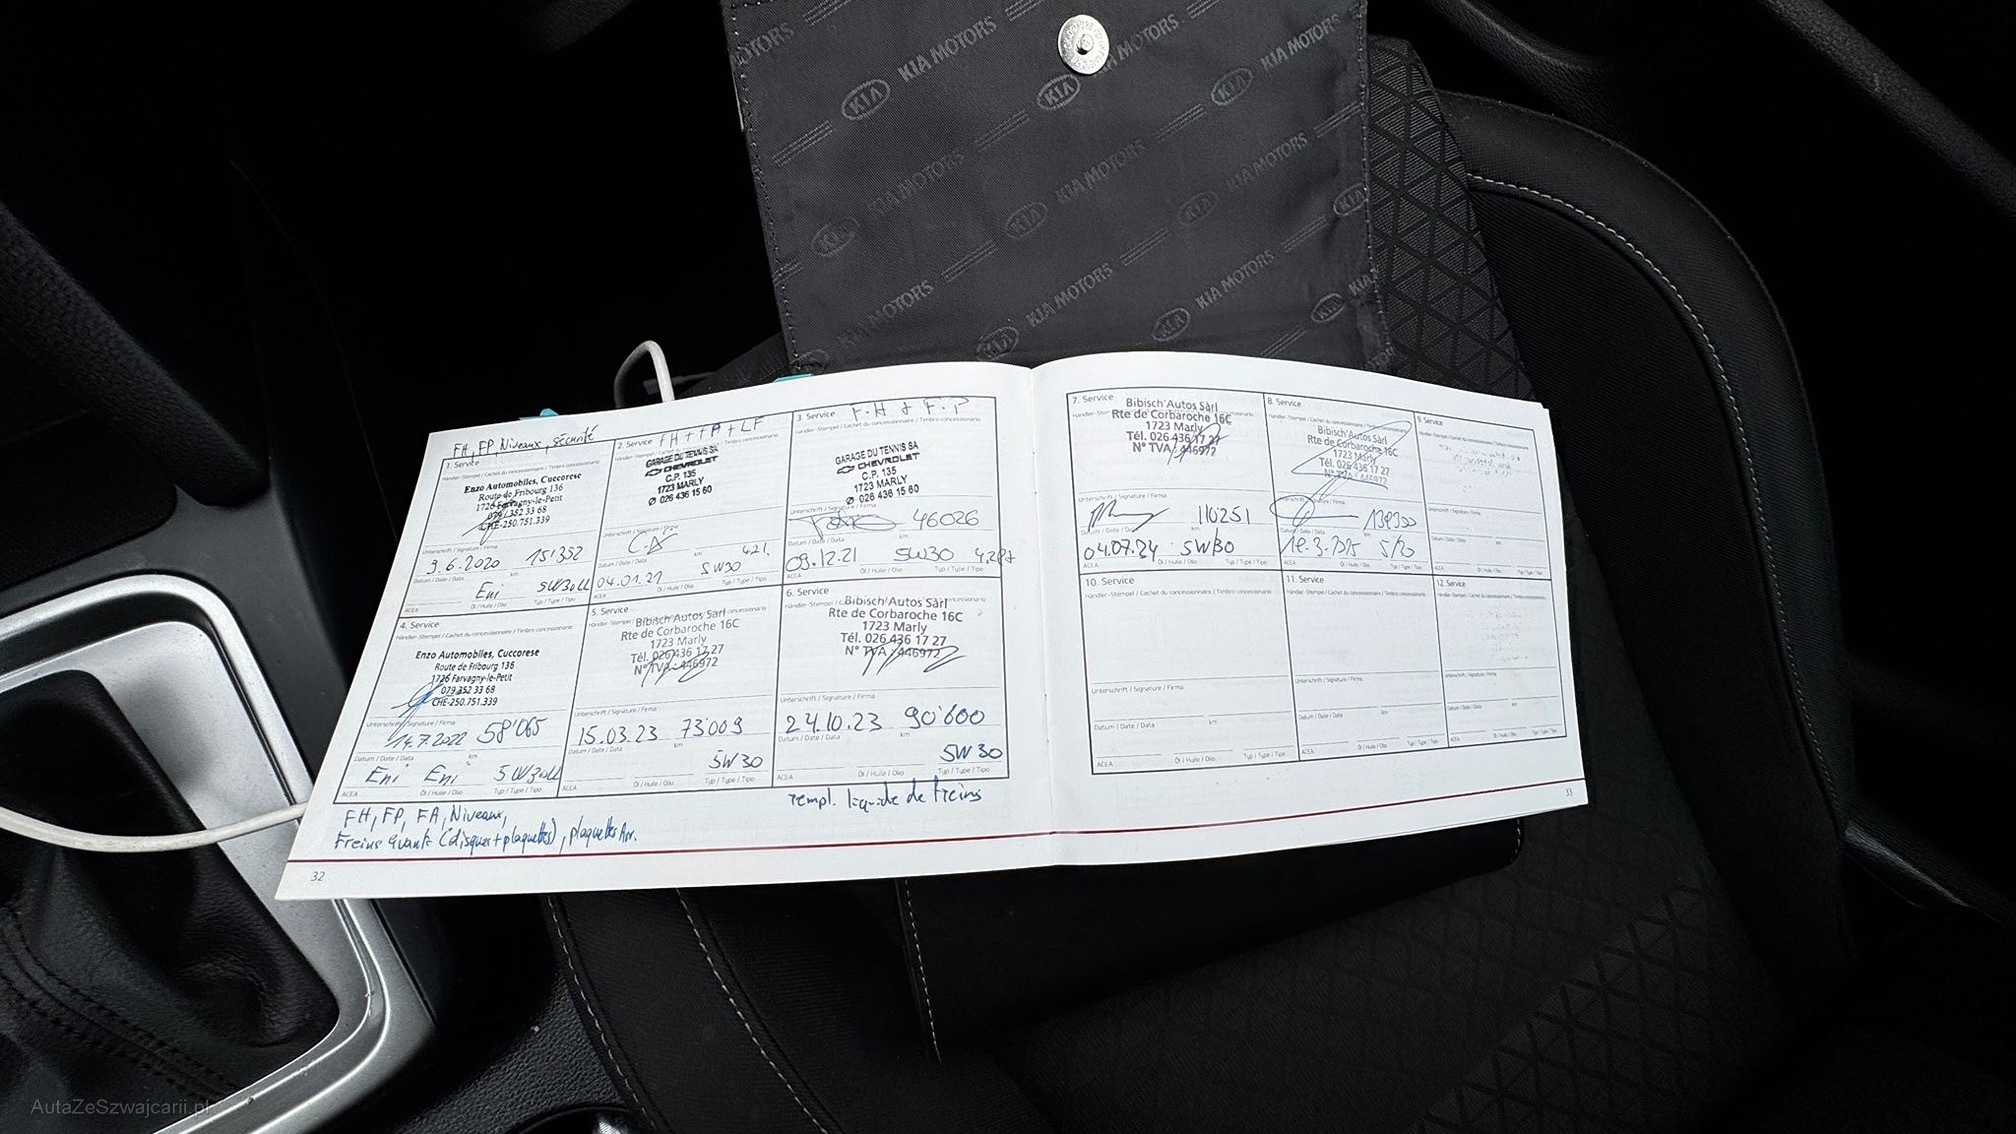 KIA MOTORS
KIA MOTORS
KIA MOTORS
KIA MOTORS
KIA MOTORS
KIA MOTORS
KIA MOTORS
KIA MOTORS
KIA MOTORS
FH, FP, Niveaux, sécurité
1. Service
Händler-Stempel / Cachet du concessionnaire / Timbro concessionario
Enzo Automobiles, Cuccorese
Route de Fribourg 136
1726 Farvagny-le-Petit
079 / 352 33 68
CHE-250.751.339
Unterschrift / Signature / Firma
9.6.2020 15'352
Datum / Date / Data km
Eni 5W30LL
ACEA Öl / Huile / Olio Typ / Type / Tipo
2. Service FH + FA + LF
Händler-Stempel / Cachet du concessionnaire / Timbro concessionario
GARAGE DU TENNIS SA
CHEVROLET
C.P. 135
1723 MARLY
026 436 15 60
Unterschrift / Signature / Firma
Datum / Date / Data km
04.01.21 5W30
ACEA Öl / Huile / Olio Typ / Type / Tipo
3. Service F.H + F.P
Händler-Stempel / Cachet du concessionnaire / Timbro concessionario
GARAGE DU TENNIS SA
CHEVROLET
C.P. 135
1723 MARLY
026 436 15 60
Unterschrift / Signature / Firma
46026
Datum / Date / Data km
09.12.21 5W30
ACEA Öl / Huile / Olio Typ / Type / Tipo
4. Service
Händler-Stempel / Cachet du concessionnaire / Timbro concessionario
Enzo Automobiles, Cuccorese
Route de Fribourg 136
1726 Farvagny-le-Petit
079 352 33 68
CHE-250.751.339
Unterschrift / Signature / Firma
14.7.2022 58'065
Datum / Date / Data km
Eni Eni 5W30LL
ACEA Öl / Huile / Olio Typ / Type / Tipo
FH, FP, FA, Niveaux,
Freins avants (disques+plaquettes), plaquettes Arr.
5. Service
Bibisch'Autos Sàrl
Rte de Corbaroche 16C
1723 Marly
Tél. 026 436 17 27
N° TVA : 446972
Unterschrift / Signature / Firma
15.03.23 73'009
Datum / Date / Data km
5W30
ACEA Öl / Huile / Olio Typ / Type / Tipo
6. Service
Bibisch'Autos Sàrl
Rte de Corbaroche 16C
1723 Marly
Tél. 026 436 17 27
N° TVA : 446972
Unterschrift / Signature / Firma
24.10.23 90'600
Datum / Date / Data km
5W30
ACEA Öl / Huile / Olio Typ / Type / Tipo
rempl. liquide de freins
32
7. Service
Bibisch'Autos Sàrl
Rte de Corbaroche 16C
1723 Marly
Tél. 026 436 17 27
N° TVA : 446972
Unterschrift / Signature / Firma
110251
Datum / Date / Data km
04.07.24 5W30
ACEA Öl / Huile / Olio Typ / Type / Tipo
8. Service
Bibisch'Autos Sàrl
Rte de Corbaroche 16C
1723 Marly
Tél. 026 436 17 27
N° TVA : 446972
Unterschrift / Signature / Firma
Datum / Date / Data km
ACEA Öl / Huile / Olio Typ / Type / Tipo
9. Service
Unterschrift / Signature / Firma
Datum / Date / Data km
ACEA Öl / Huile / Olio Typ / Type / Tipo
10. Service
Händler-Stempel / Cachet du concessionnaire / Timbro concessionario
Unterschrift / Signature / Firma
Datum / Date / Data km
ACEA Öl / Huile / Olio Typ / Type / Tipo
11. Service
Händler-Stempel / Cachet du concessionnaire / Timbro concessionario
Unterschrift / Signature / Firma
Datum / Date / Data km
ACEA Öl / Huile / Olio Typ / Type / Tipo
12. Service
Händler-Stempel / Cachet du concessionnaire / Timbro concessionario
Unterschrift / Signature / Firma
Datum / Date / Data km
ACEA Öl / Huile / Olio Typ / Type / Tipo
33
AutaZeSzwajcarii.pl